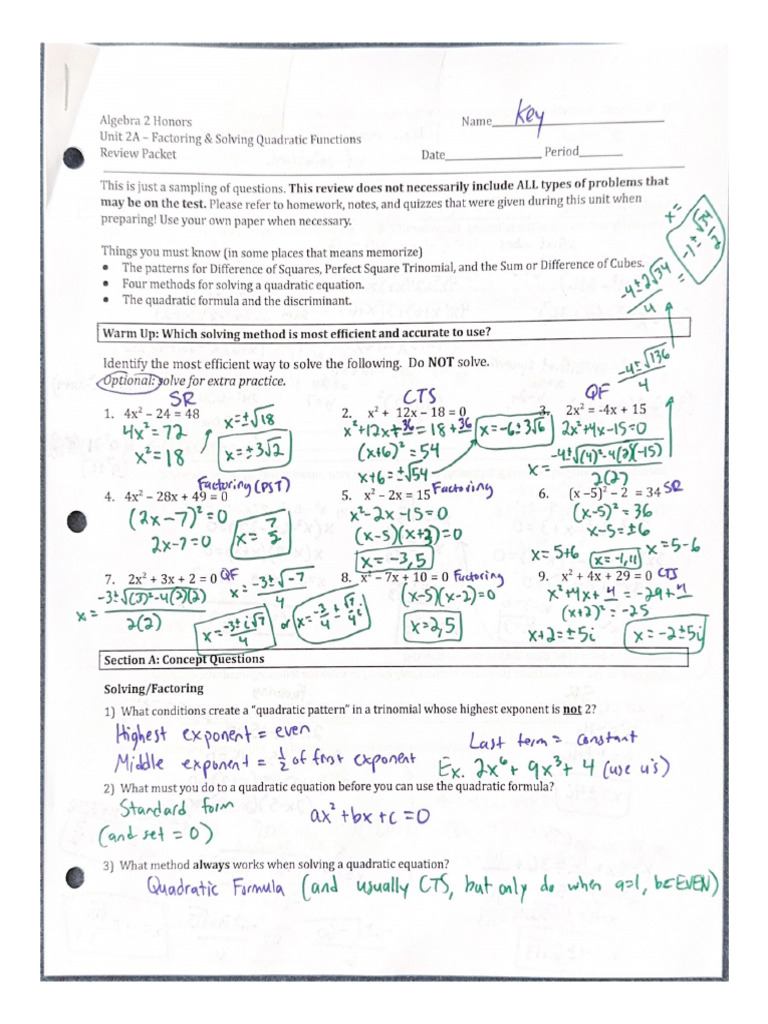 Algebra 2 Honors
Unit 2A – Factoring & Solving Quadratic Functions
Review Packet
Name key
Date Period
This is just a sampling of questions. This review does not necessarily include ALL types of problems that
may be on the test. Please refer to homework, notes, and quizzes that were given during this unit when
preparing! Use your own paper when necessary.
Things you must know (in some places that means memorize)
• The patterns for Difference of Squares, Perfect Square Trinomial, and the Sum or Difference of Cubes.
• Four methods for solving a quadratic equation.
• The quadratic formula and the discriminant.
Warm Up: Which solving method is most efficient and accurate to use?
Identify the most efficient way to solve the following. Do NOT solve.
Optional: solve for extra practice.
SR
1. 4x² – 24 = 48
4x² = 72
x² = 18
x = ±√18
x = ±3√2
CTS
2. x² + 12x – 18 = 0
x² + 12x + 36 = 18 + 36
(x+6)² = 54
x+6 = ±√54
x = -6 ± 3√6
QF
3. 2x² = -4x + 15
2x² + 4x - 15 = 0
x = -4 ± √(4)² - 4(2)(-15)
2(2)
-4 ± √136
4
-4 ± 2√34
4
=
x =
4. 4x² – 28x + 49 = 0
Factoring (PST)
(2x - 7)² = 0
2x - 7 = 0
x = 7/2
5. x² – 2x = 15 Factoring
x² - 2x - 15 = 0
(x-5)(x+3) = 0
x = -3, 5
6. (x –5)² – 2 = 34 SR
(x-5)² = 36
x-5 = ±6
x = 5+6
x = 5-6
x = -1, 11
7. 2x² + 3x + 2 = 0 QF
x = -3 ± √(3)² - 4(2)(2)
2(2)
x = -3 ± √-7
4
x = -3 ± i√7
4
or x = -3/4 ± √7/4 i
8. x² – 7x + 10 = 0 Factoring
(x-5)(x-2) = 0
x = 2, 5
9. x² + 4x + 29 = 0 CTS
x² + 4x + 4 = -29 + 4
(x+2)² = -25
x+2 = ±5i
x = -2 ± 5i
Section A: Concept Questions
Solving/Factoring
1) What conditions create a "quadratic pattern" in a trinomial whose highest exponent is not 2?
Highest exponent = even
Middle exponent = 1/2 of first exponent
Last term = constant
Ex. 2x⁶ + 9x³ + 4 (use u's)
2) What must you do to a quadratic equation before you can use the quadratic formula?
Standard form
(and set = 0)
ax² + bx + c = 0
3) What method always works when solving a quadratic equation?
Quadratic Formula (and usually CTS, but only do when a=1, b=EVEN)